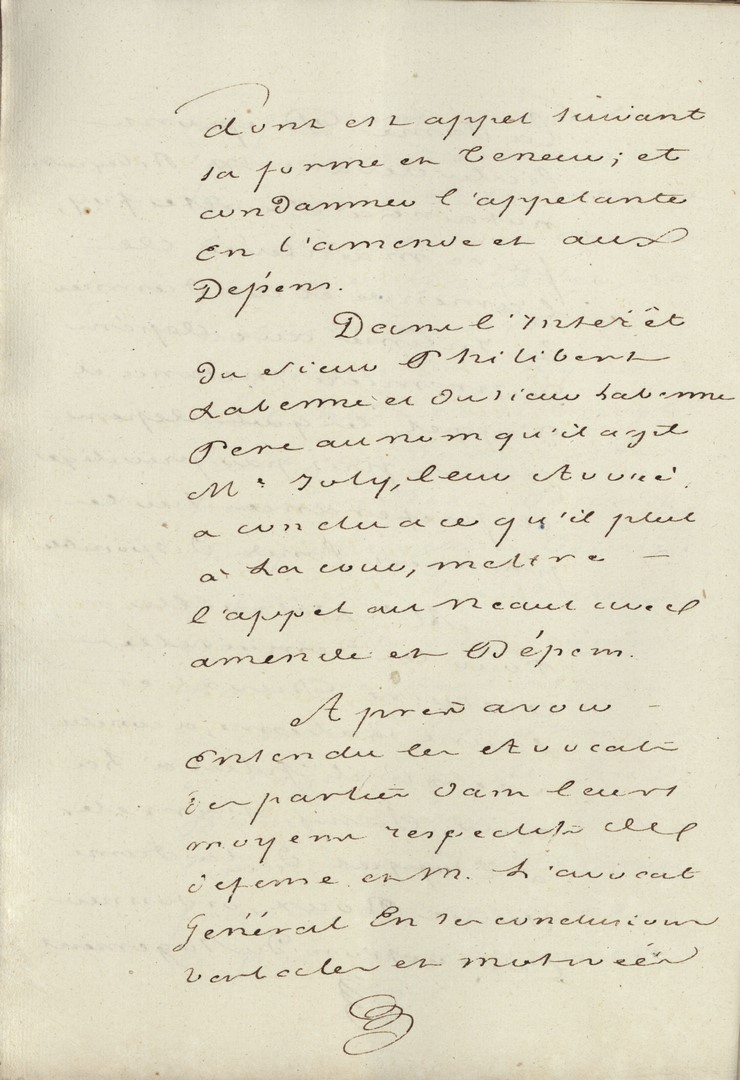 dont est appel suivant
sa forme et teneur; et
condamner l'appelante
En l'amende et aux
Dépens.
Dans l'Intérêt
Du sieur Philibert
Laberme et du sieur Laberme
Pere au nom qu'il agit
Me Joly, leur Avoué
a conclu a ce qu'il plut
à La cour, mettre —
l'appel au Neant avec
amende et Dépens.
Après avoir —
Entendu les Avocats
des parties dans leurs
moyens respectifs de
défense et M. L'avocat
Général En ses conclusions
verbales et motivées